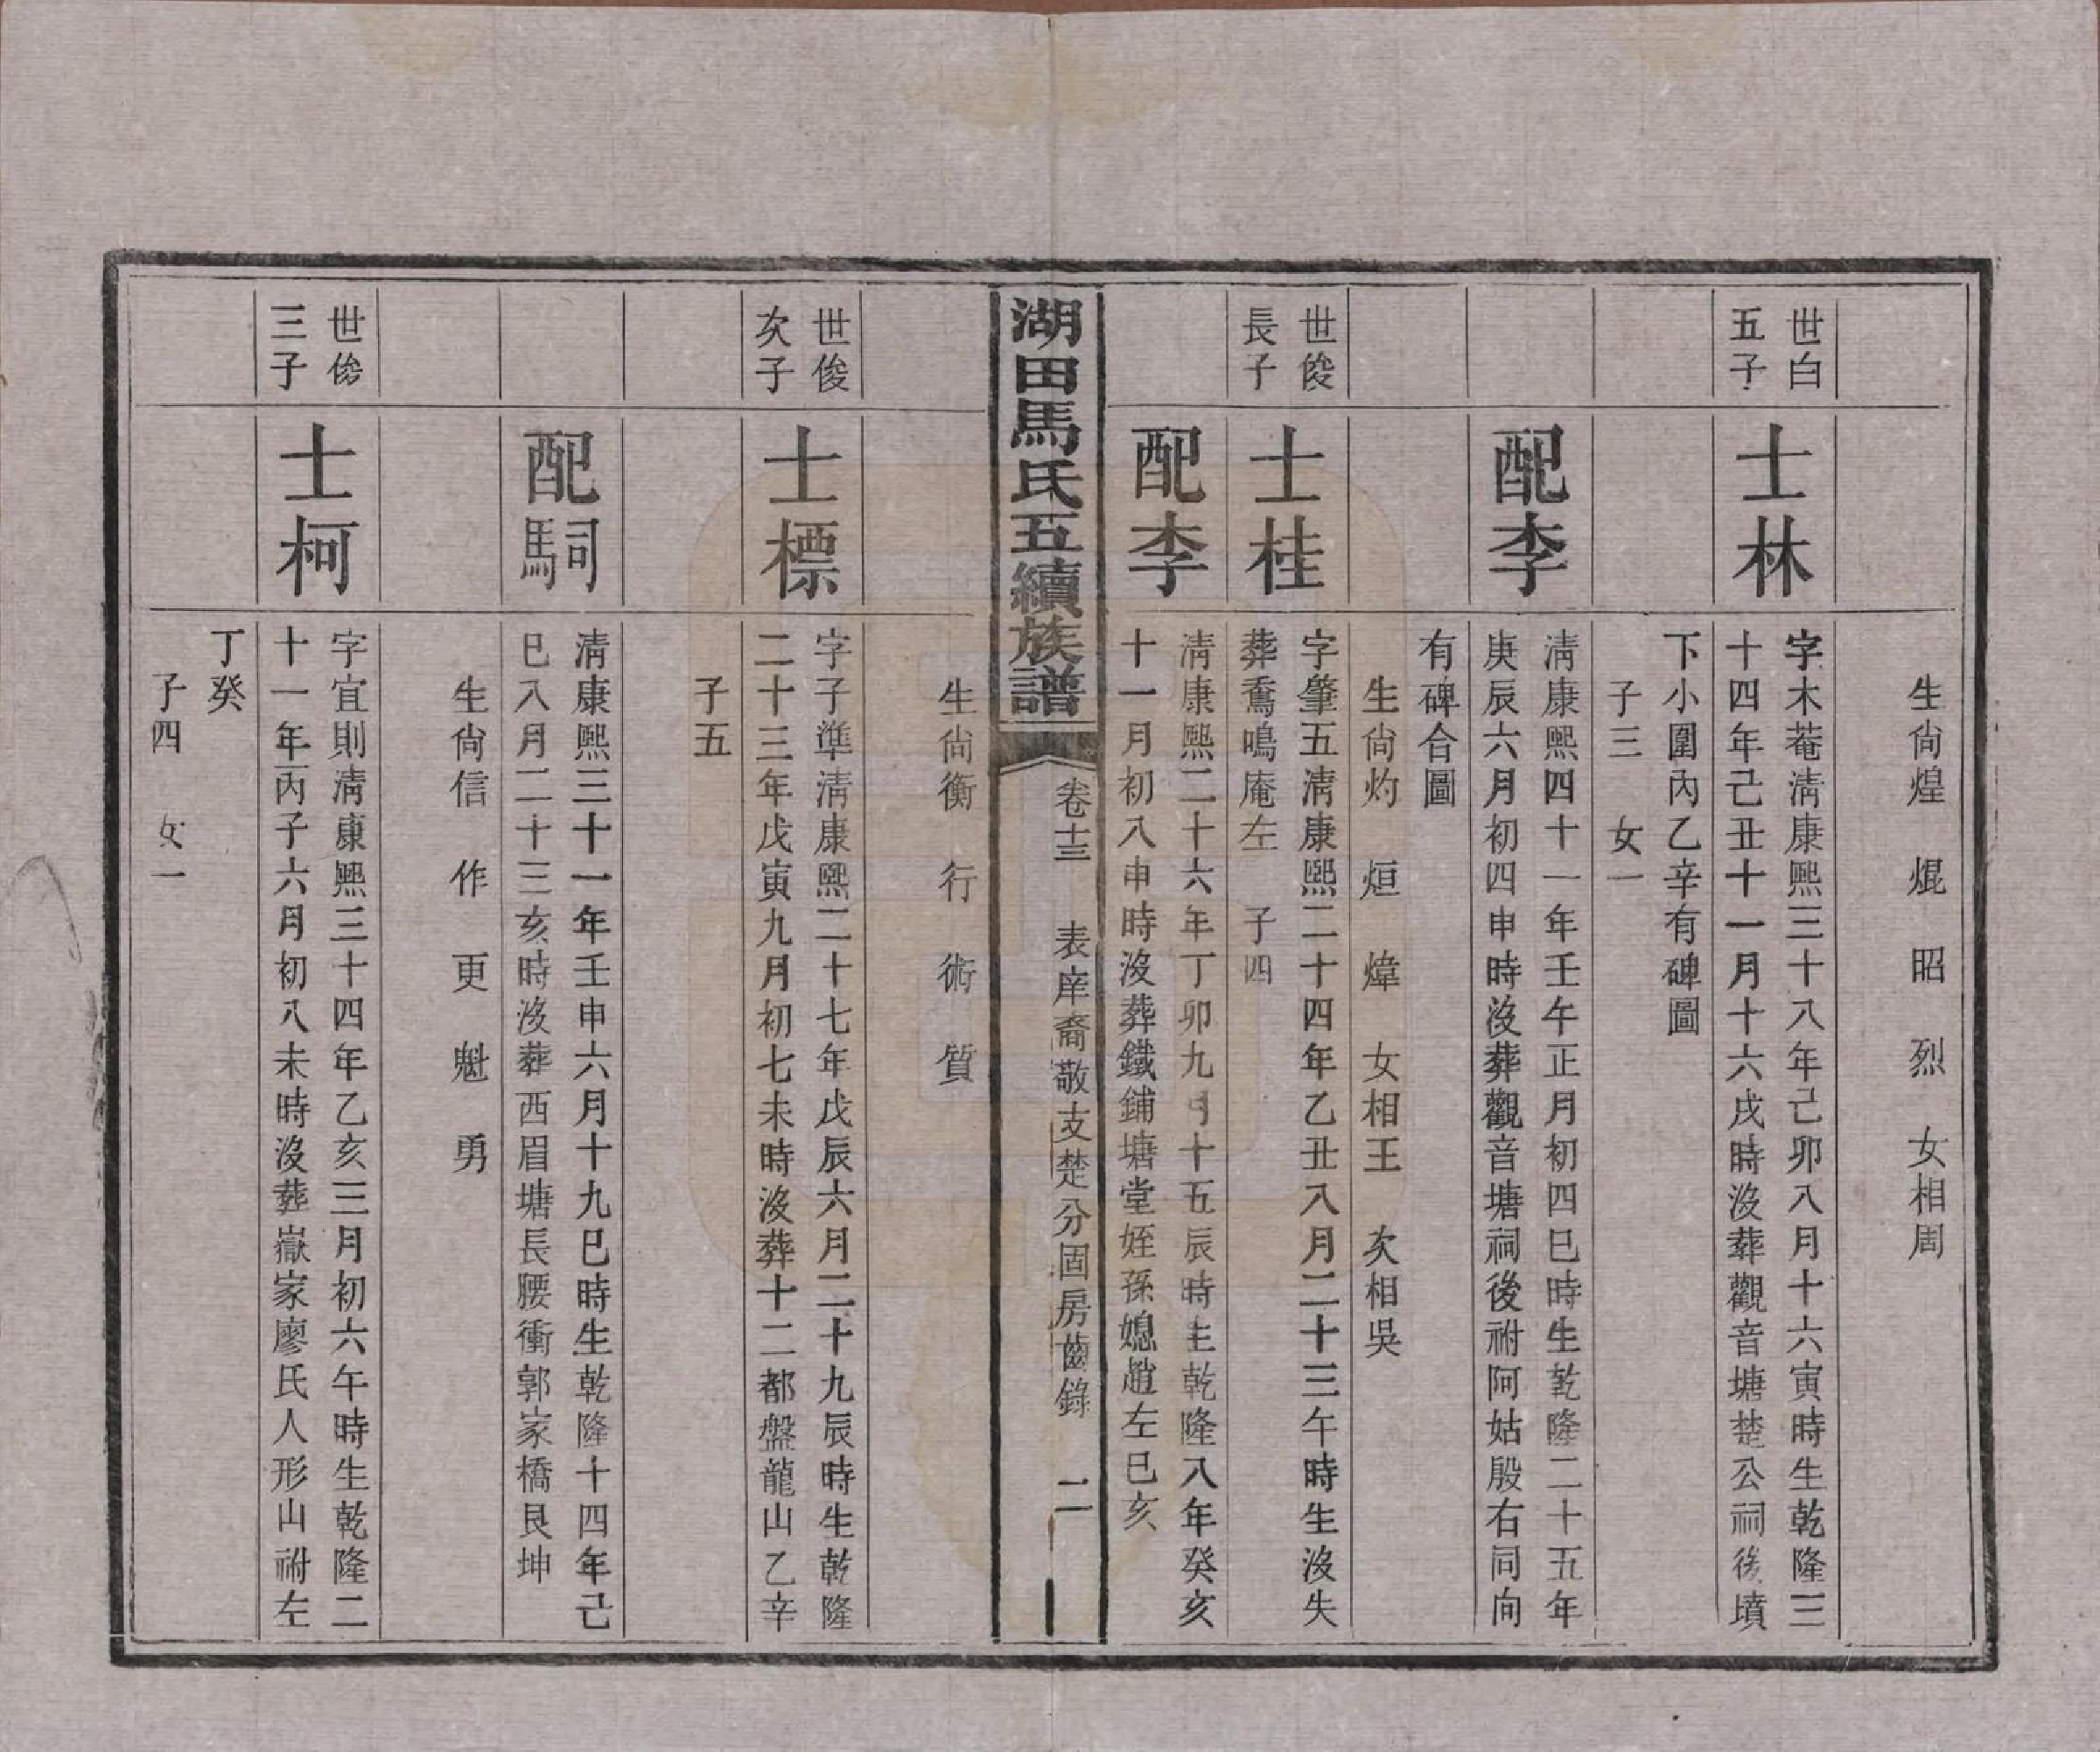 生尙煌　焜　昭　烈　女相周
世白
五子
士林
字木菴淸康熙三十八年己卯八月十六寅時生乾隆三
十四年己丑十一月十六戌時沒葬觀音塘楚公祠後墳
下小圍內乙辛有碑圖
子三　女一
配李
淸康熙四十一年壬午正月初四巳時生乾隆二十五年
庚辰六月初四申時沒葬觀音塘祠後祔阿姑殷右同向
有碑合圖
生尙灼　烜　煒　女相王　次相吳
世俊
長子
士桂
字肇五淸康熙二十四年乙丑八月二十三午時生沒失
葬鴌鳴庵左　子四
配李
淸康熙二十六年丁卯九月十五辰時生乾隆八年癸亥
十一月初八申時沒葬鐵鋪塘堂姪孫媳趙左巳亥
湖田馬氏五續族譜
卷十三　表庠裔敬支楚分固房齒錄　二
生尙衡　行　術　質
世俊
次子
士標
字子準淸康熙二十七年戊辰六月二十九辰時生乾隆
二十三年戊寅九月初七未時沒葬十二都盤龍山乙辛
子五
配駧
淸康熙三十一年壬申六月十九巳時生乾隆十四年己
巳八月二十三亥時沒葬西眉塘長腰衝郭家橋艮坤
生尙信　作　更　魁　勇
世俊
三子
士柯
字宜則淸康熙三十四年乙亥三月初六午時生乾隆二
十一年丙子六月初八未時沒葬嶽家廖氏人形山祔左
丁癸
子四　女一